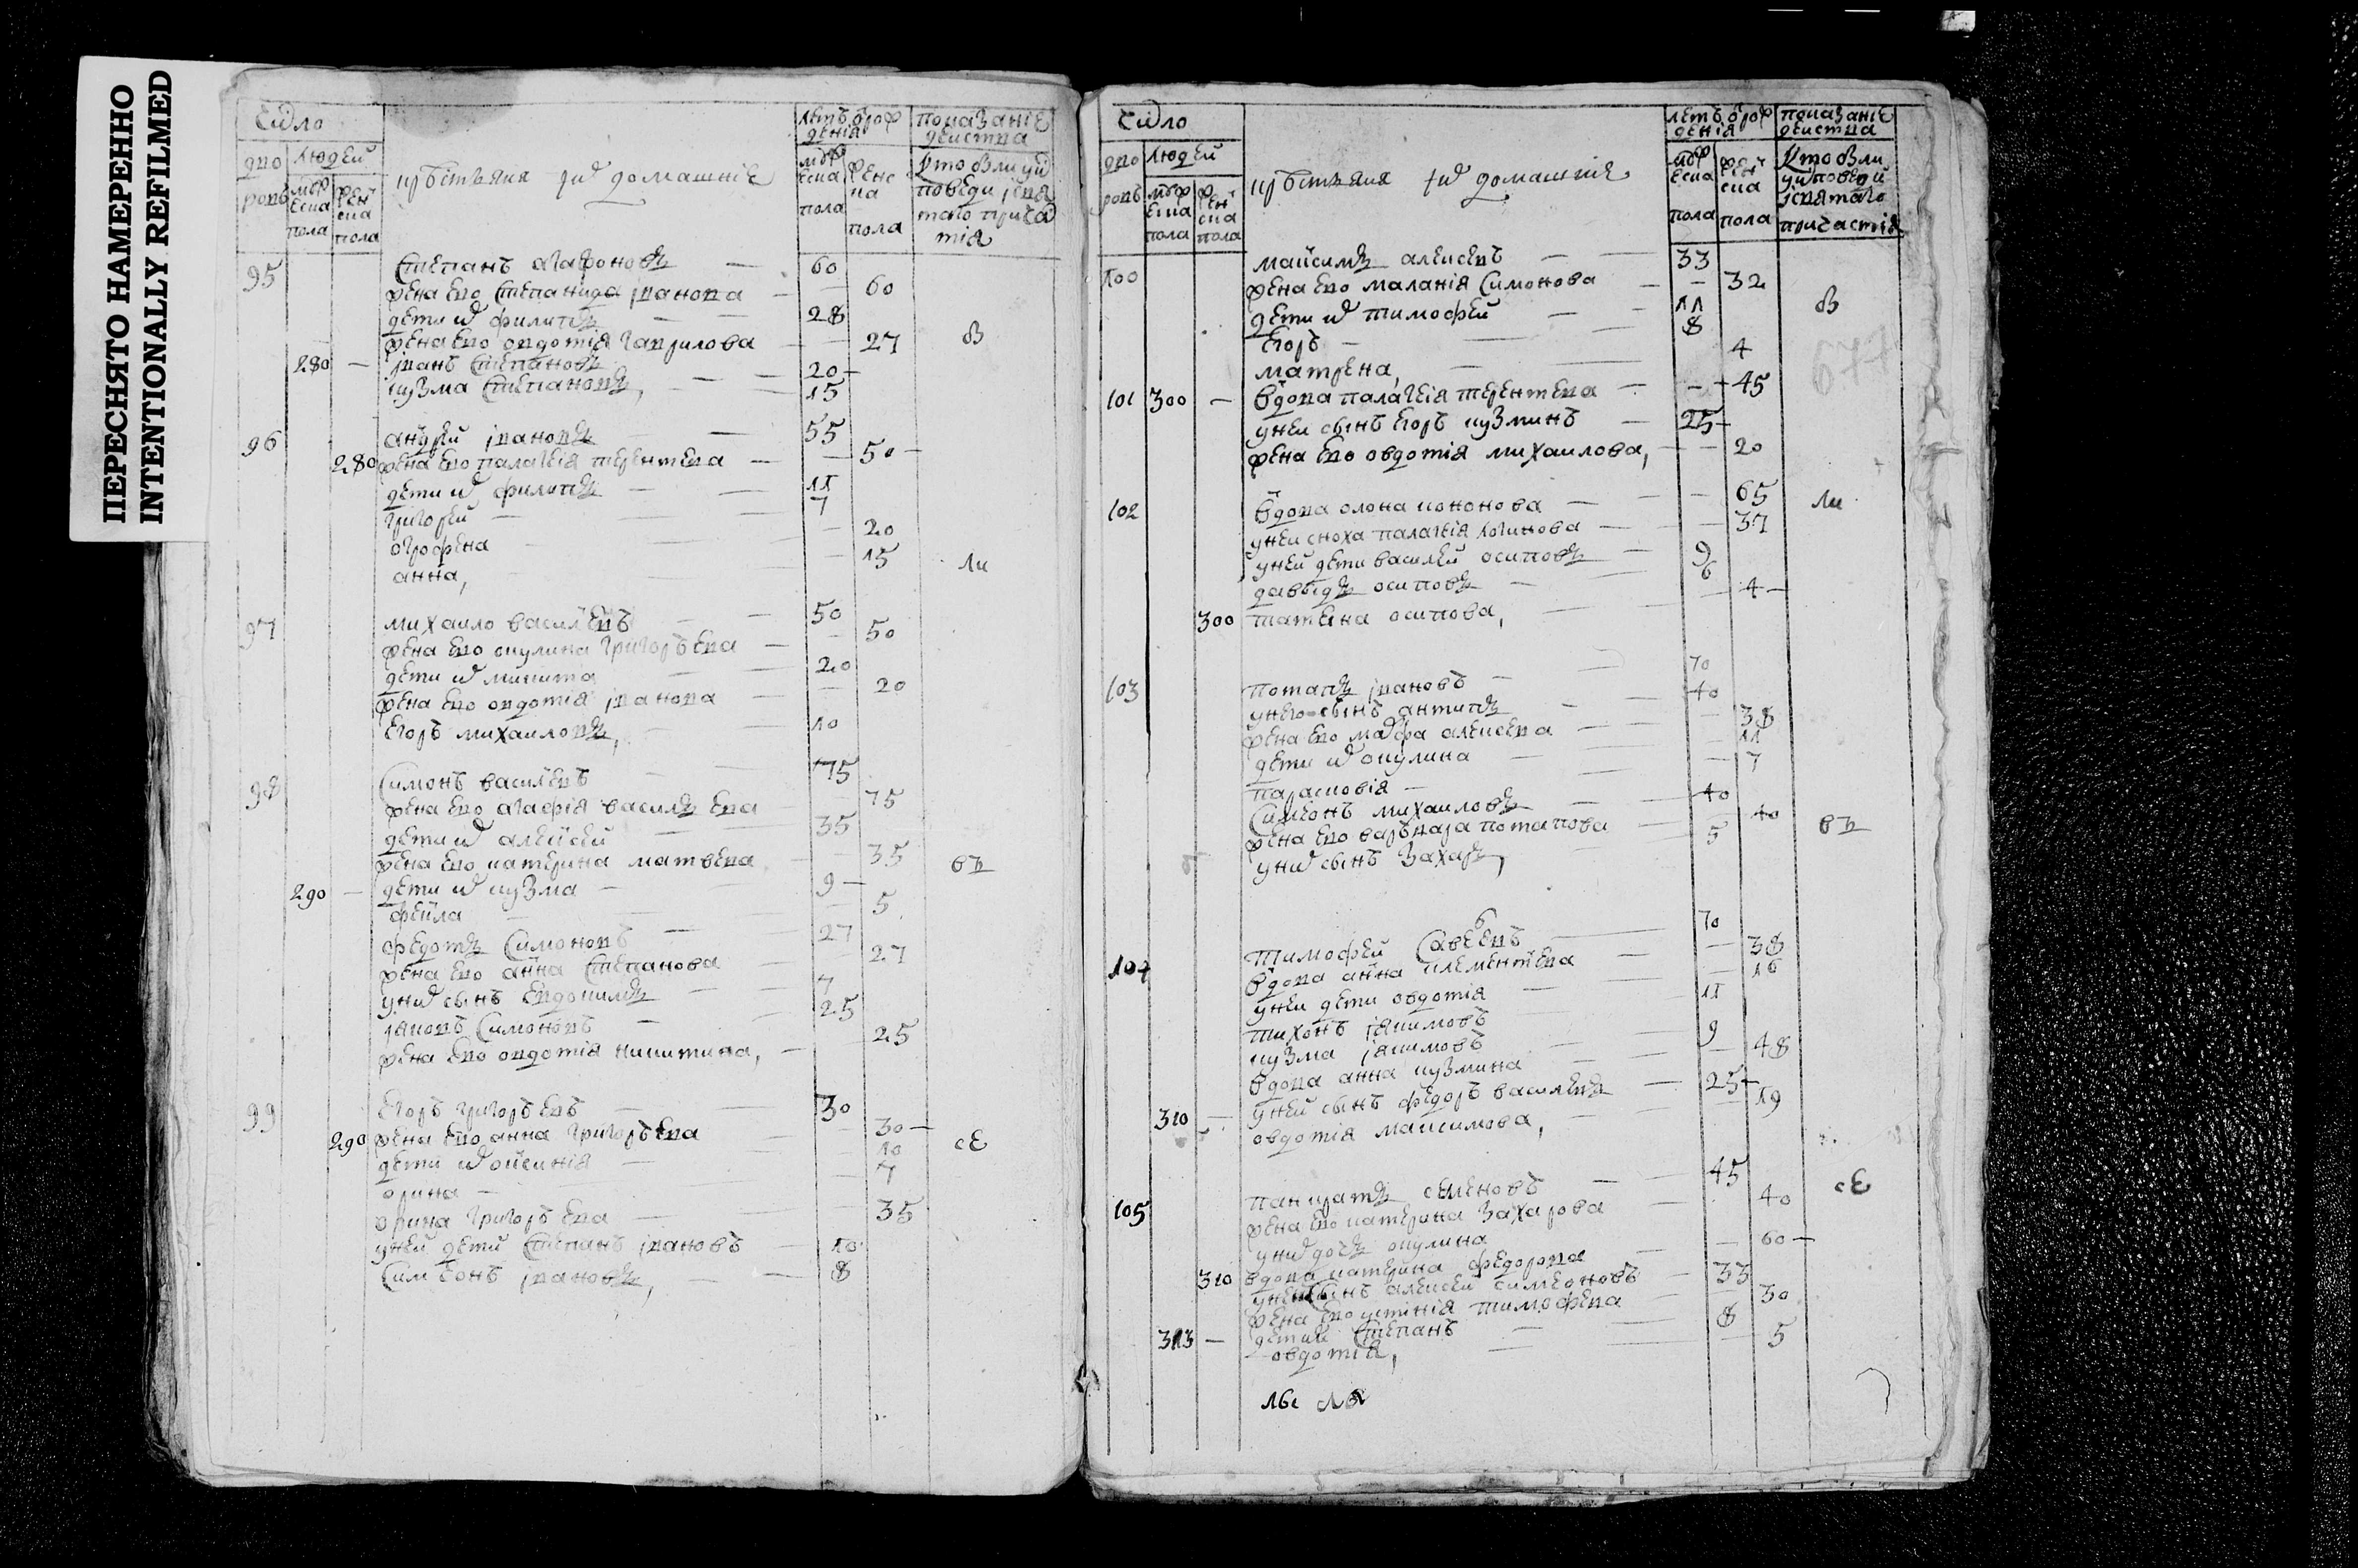 ПЕРЕСНЯТО НАМЕРЕННО
INTENTIONALLY REFILMED
Число
дво ровъ
людей
муж еска пола
жен ска пола
крестьяня и их домашние
летъ от рож дения
муж еска пола
женс ка пола
показание действа
кто был у исповеди и свя таго прича тия
95 Степанъ Агафоновъ — 60
жена ево Степанида Iванова — 60
дети их Филипъ — 28
жена ево Овдотия Гаврилова — 27 в
280 — Iванъ Степановъ — 20
Кузма Степановъ, — 15
96 Андрей Iвановъ — 55
280 жена ево Палагея Терентева — 50
дети их Филипъ — 11
Григорей — 7
Огрофена 20
Анна, 15 ли
97 Михаило Василевъ — 50
жена ево Окулина Григорьева — 50
дети их Микита 20
жена ево Овдотия Iванова — 20
Егоръ Михаиловъ, — 10
98 Симонъ Василевъ 75
жена ево Агафия Васильева 75
дети их Алексей 35
жена ево Катерина Матвева 35 въ
290 — дети их Кузма — 9
Фекла 5
Федотъ Симоновъ — 27
жена ево Анна Степанова — 27
у них сынъ Евдокимъ — 7
Iяковъ Симоновъ — 25
жена ево Овдотия Никитина, — 25
99 Егоръ Григорьевъ — 30
290 жена ево Анна Григорьева — 30
дети их Оксиния — 10 се
Орина — 7
Орина Григорьева — 35
у ней дети Степанъ Iвановъ — 10
Симеонъ Iвановъ, — 8
Число
дво ровъ
людей
муж еска пола
жен ска пола
крестьяня и их домашние
летъ от рож дения
муж еска пола
жен ска пола
показание действа
кто был у исповеди и святаго причастия
100 Максимъ Алексевъ — 33
жена ево Маланiя Симонова — 32
дети их Тимофей — 11 в
Егоръ — 8
Матрена, — 4
101 300 — вдова Палагея Терентева — 45
у ней сынъ Егоръ Кузминъ — 25
жена ево Овдотiя Михаилова, — 20
102 вдова Олона Кононова — 65 ли
у ней сноха Палагея Логинова — 37
у ней дети Василей Осиповъ — 9
Давыдъ Осиповъ — 6
300 Татьяна Осипова, — 4
103 Потапъ Iвановъ — 70
у него сынъ Антипъ — 40
жена ево Марфа Алексева — 38
дети их Окулина — 11
Парасковiя — 7
Симеонъ Михаиловъ — 40
жена ево Варвара Потапова — 40 въ
у них сынъ Захаръ, 5
104 Тимофей Савеевъ — 70
вдова Анна Клементева — 38
у ней дети Овдотiя — 16
Тихонъ Iякимовъ — 11
Кузма Iякимовъ — 9
вдова Анна Кузмина — 48
310 — у ней сынъ Федоръ Василевъ — 25
Овдотiя Максимова, — 19
105 Панкратъ Семеновъ — 45 се
жена ево Катерина Захарова — 40
у них дочь Окулина
310 вдова Катерина Федорова — 60
у ней сынъ Алексей Симеоновъ — 33
жена ево Устинiя Тимофева — 30
313 — дети их Степанъ — 8
Овдотiя, — 5